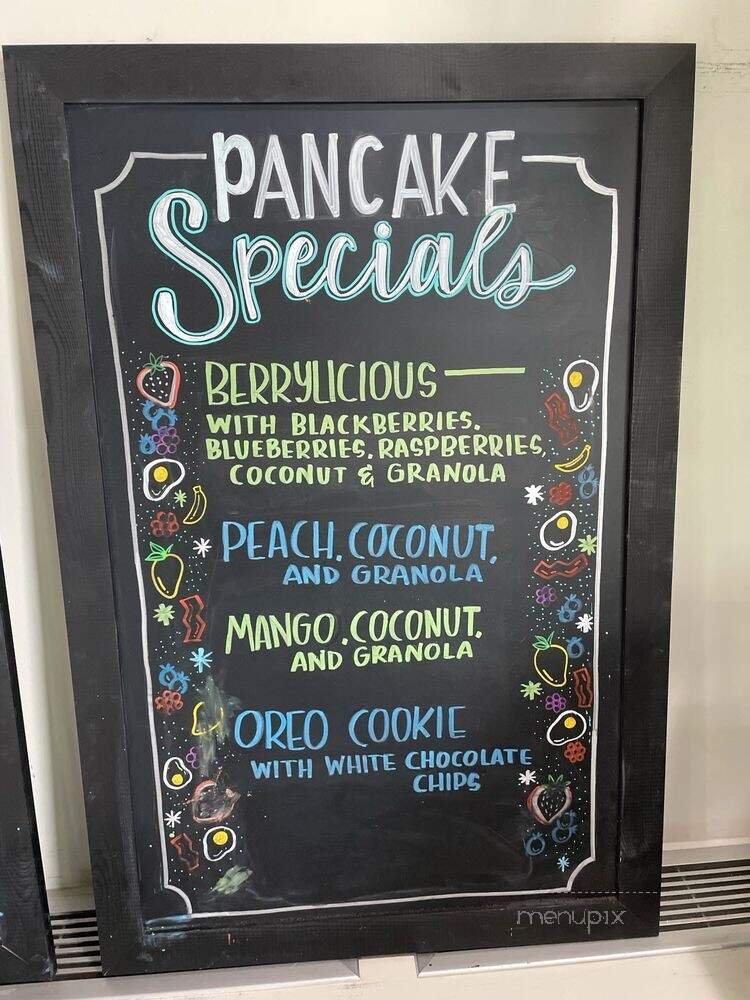 PANCAKE
Specials
BERRYLICIOUS
WITH BLACKBERRIES,
BLUEBERRIES, RASPBERRIES,
COCONUT & GRANOLA
PEACH, COCONUT,
AND GRANOLA
MANGO, COCONUT,
AND GRANOLA
OREO COOKIE
WITH WHITE CHOCOLATE
CHIPS
menupix